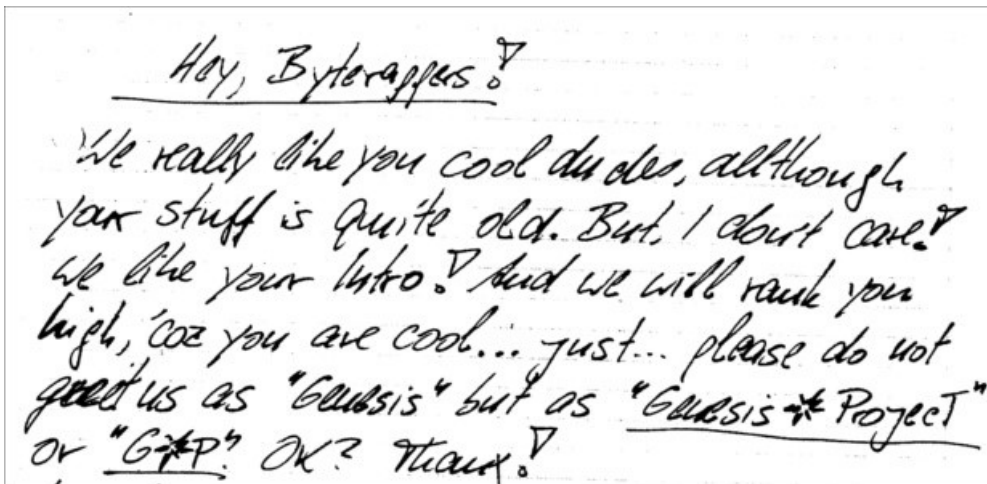 Hey, Byterappers!
We really like you cool dudes, allthough
your stuff is quite old. But, I don't care!
We like your Intro! And we will rank you
high, 'coz you are cool... just... please do not
greet us as "Genesis" but as "Genesis*Project"
or "G*P". OK? Thanx!